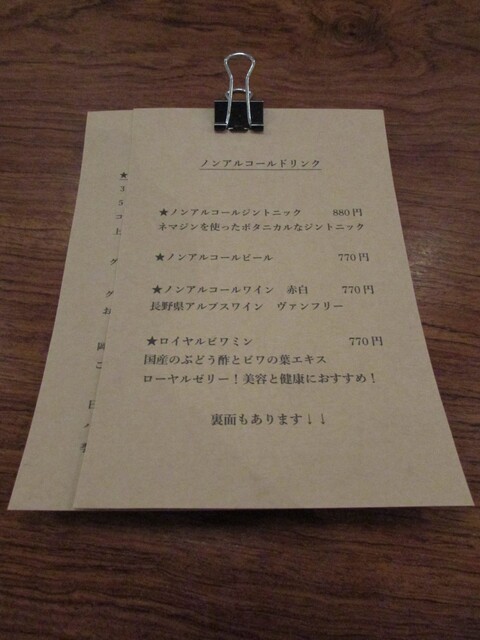 ノンアルコールドリンク
★ノンアルコールジントニック 880円
ネマジンを使ったボタニカルなジントニック
★ノンアルコールビール 770円
★ノンアルコールワイン 赤白 770円
長野県アルプスワイン ヴァンフリー
★ロイヤルビワミン 770円
国産のぶどう酢とビワの葉エキス
ローヤルゼリー！美容と健康におすすめ！
裏面もあります↓↓
★
3
5
コ
上
グ
グ
お